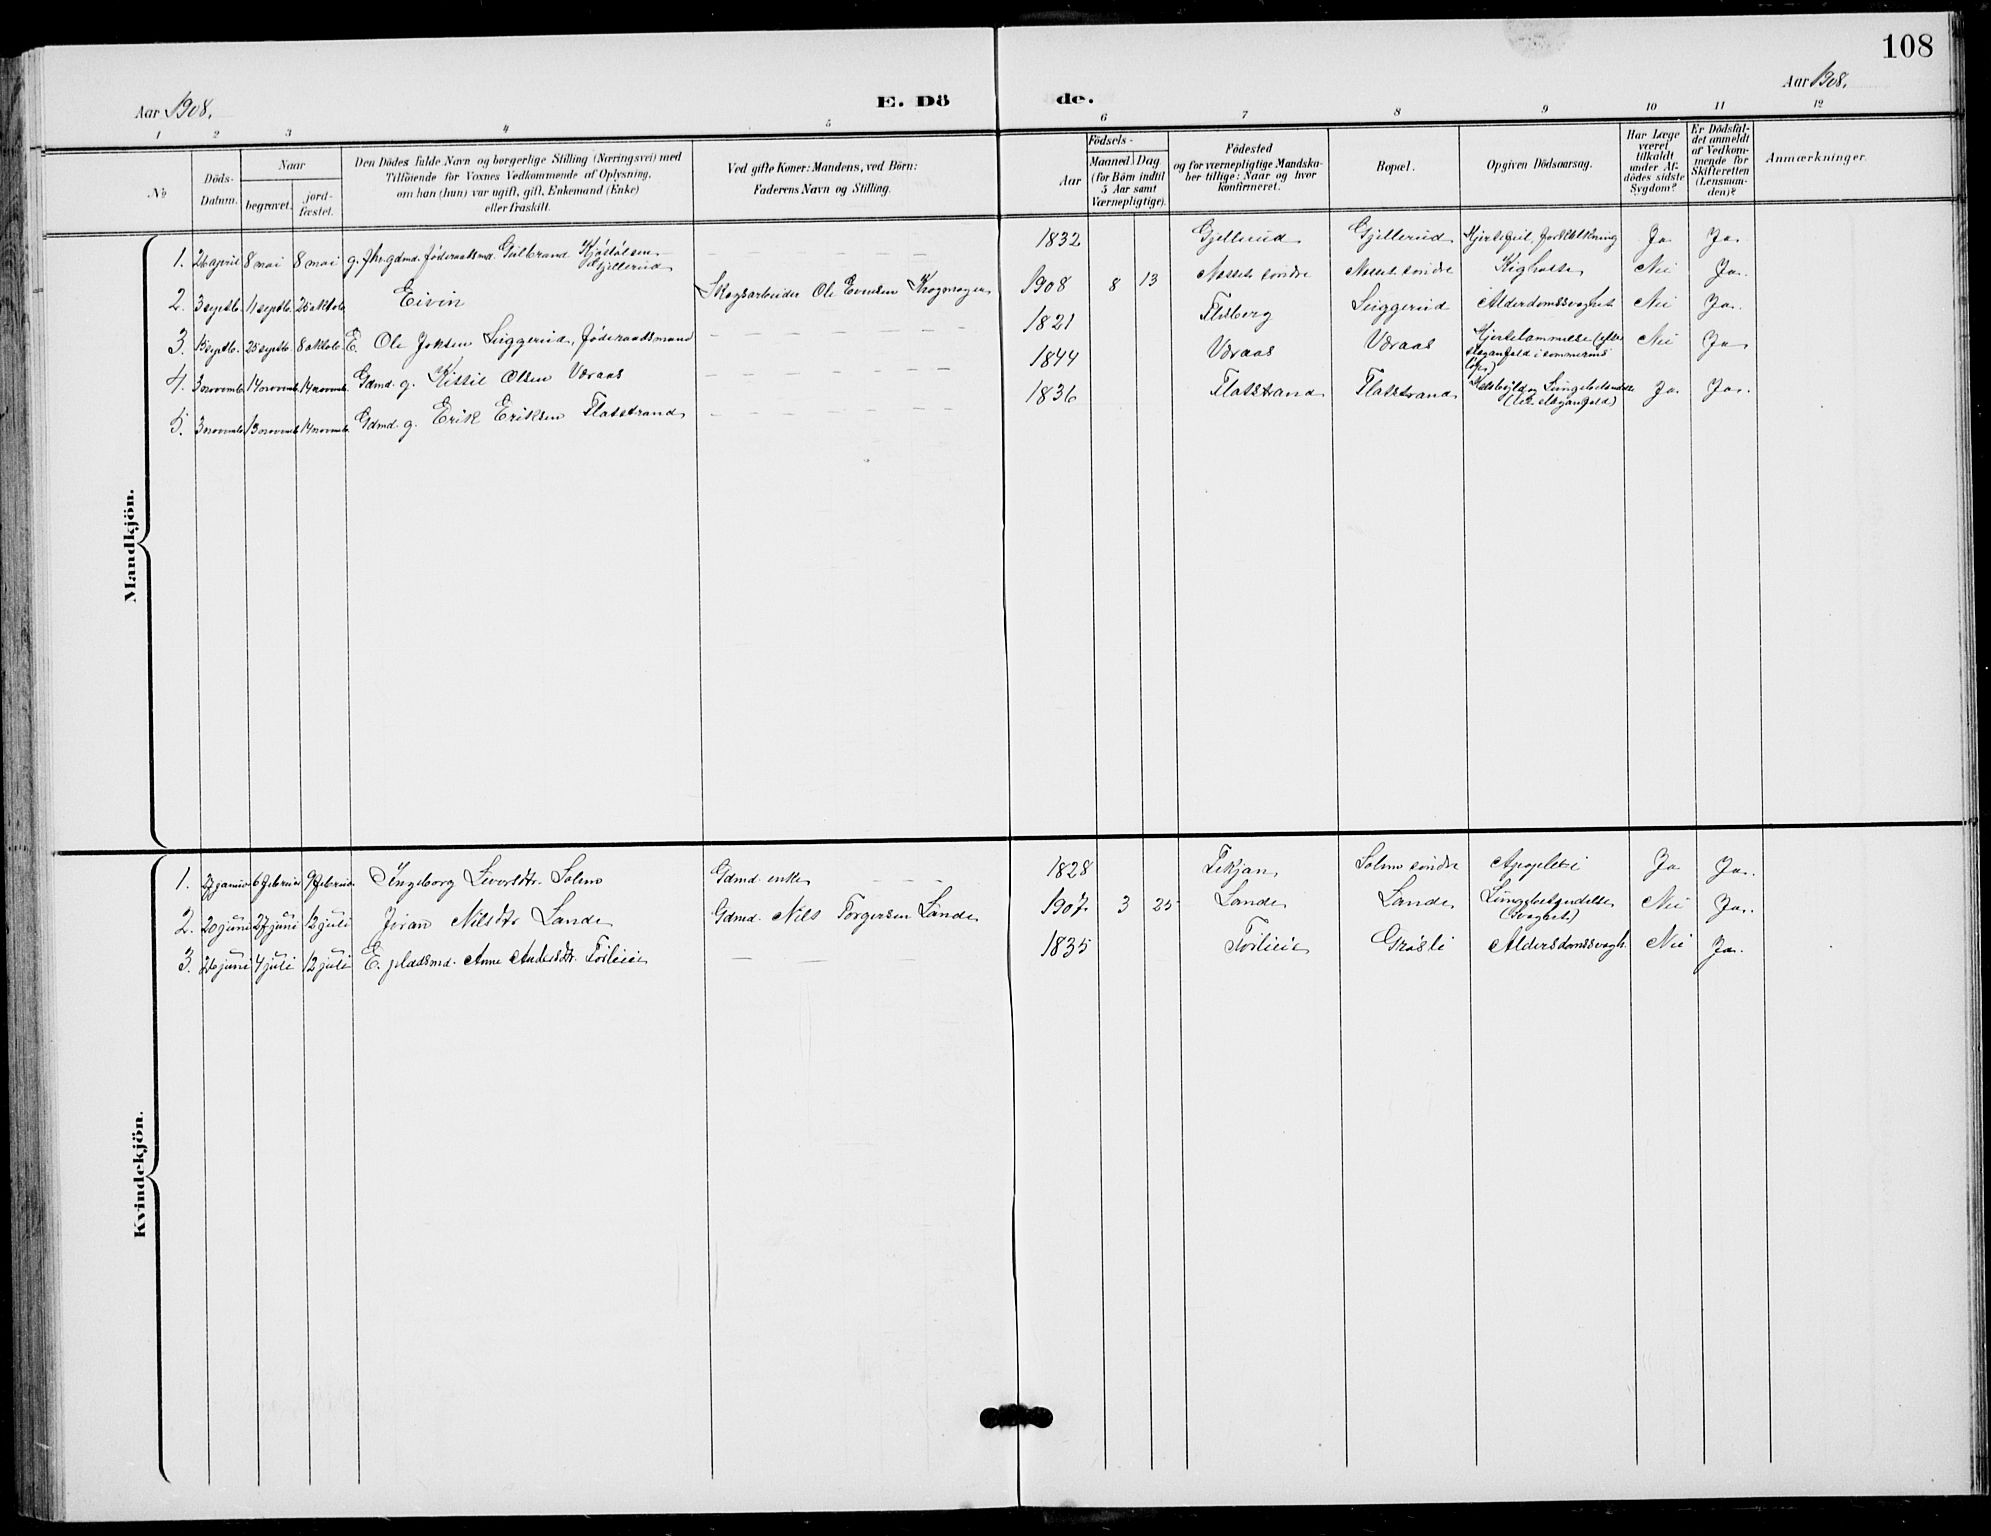 108
Aar 1908.
E. Dö
de.
Aar 1908.
1 2 3 4 5 6 7 8 9 10 11 12
No
Döds-Datum.
Naar
begravet.
jordfæstet.
Den Dödes fulde Navn og borgerlige Stilling (Næringsvei) med
Tilföiende for Voxnes Vedkommende af Oplysning,
om han (hun) var ugift, gift, Enkemand (Enke)
eller fraskilt.
Ved gifte Koner: Mandens, ved Börn:
Faderens Navn og Stilling.
Födsels-
Aar
Maaned Dag
(for Börn indtil
5 Aar samt
Værnepligtige).
Födested
og for værnepligtige Mandskaber tillige: Naar og hvor
konfirmeret.
Bopæl.
Opgiven Dödsaarsag.
Har Læge
været
tilkaldt
under Afdödes sidste
Sygdom?
Er Dödsfaldet anmeldt
af Vedkommende for
Skifteretten
(Lensmanden)?
Anmærkninger.
Mandkjön.
1. 26 april 8 mai 8 mai g. fhv. gdmd. föderaadsmd. Gulbrand Kjöstolsen Gjellerud 1832 Gjellerud Gjellerud Hjertefeil, forkalkning Ja Ja.
2. 3 septb. 11 septb. 25 oktob. Eivin Skogsarbeider Ole Evensen 1908 8 13 söndre söndre Kighoste Nei Ja.
3. 15 septb. 25 septb. 8 oktob. E. Ole Joksen Seiggerud, föderaadsmand 1821 Flesberg Seiggerud Alderdomssvaghet Nei Ja.
4. 3 novemb. 14 novemb. 14 novemb. Gdmd. g. Kittil Olsen Væraas 1844 Væraas Væraas Hjertelammelse (efter slaganfald i sommerens löp) Nei Ja
5. 3 novemb. 13 novemb. 14 novemb. Gdmd. g. Erik Eriksen Flatstrand 1836 Flatstrand Flatstrand og Lungebetændelse (let slaganfald) Ja. Ja.
Kvindekjön.
1. 27 januar 6 februar 9 februar Ingeborg Sivertsdtr. Solem Gdmd. enke 1828 Solem söndre Apoplexi Ja Ja.
2. 20 juni 27 juni 12 juli Jöran Nilsdtr. Lande Gdmd. Nils Torgersen Lande 1907 3 25 Lande Lande Lungebetændelse (svaghet) Nei Ja.
3. 26 juni 4 juli 12 juli E. pladsmd. Anne Andersdtr. Törlieie 1835 Törlieie Gråsli Aldersdomssvagh. Nei Ja.